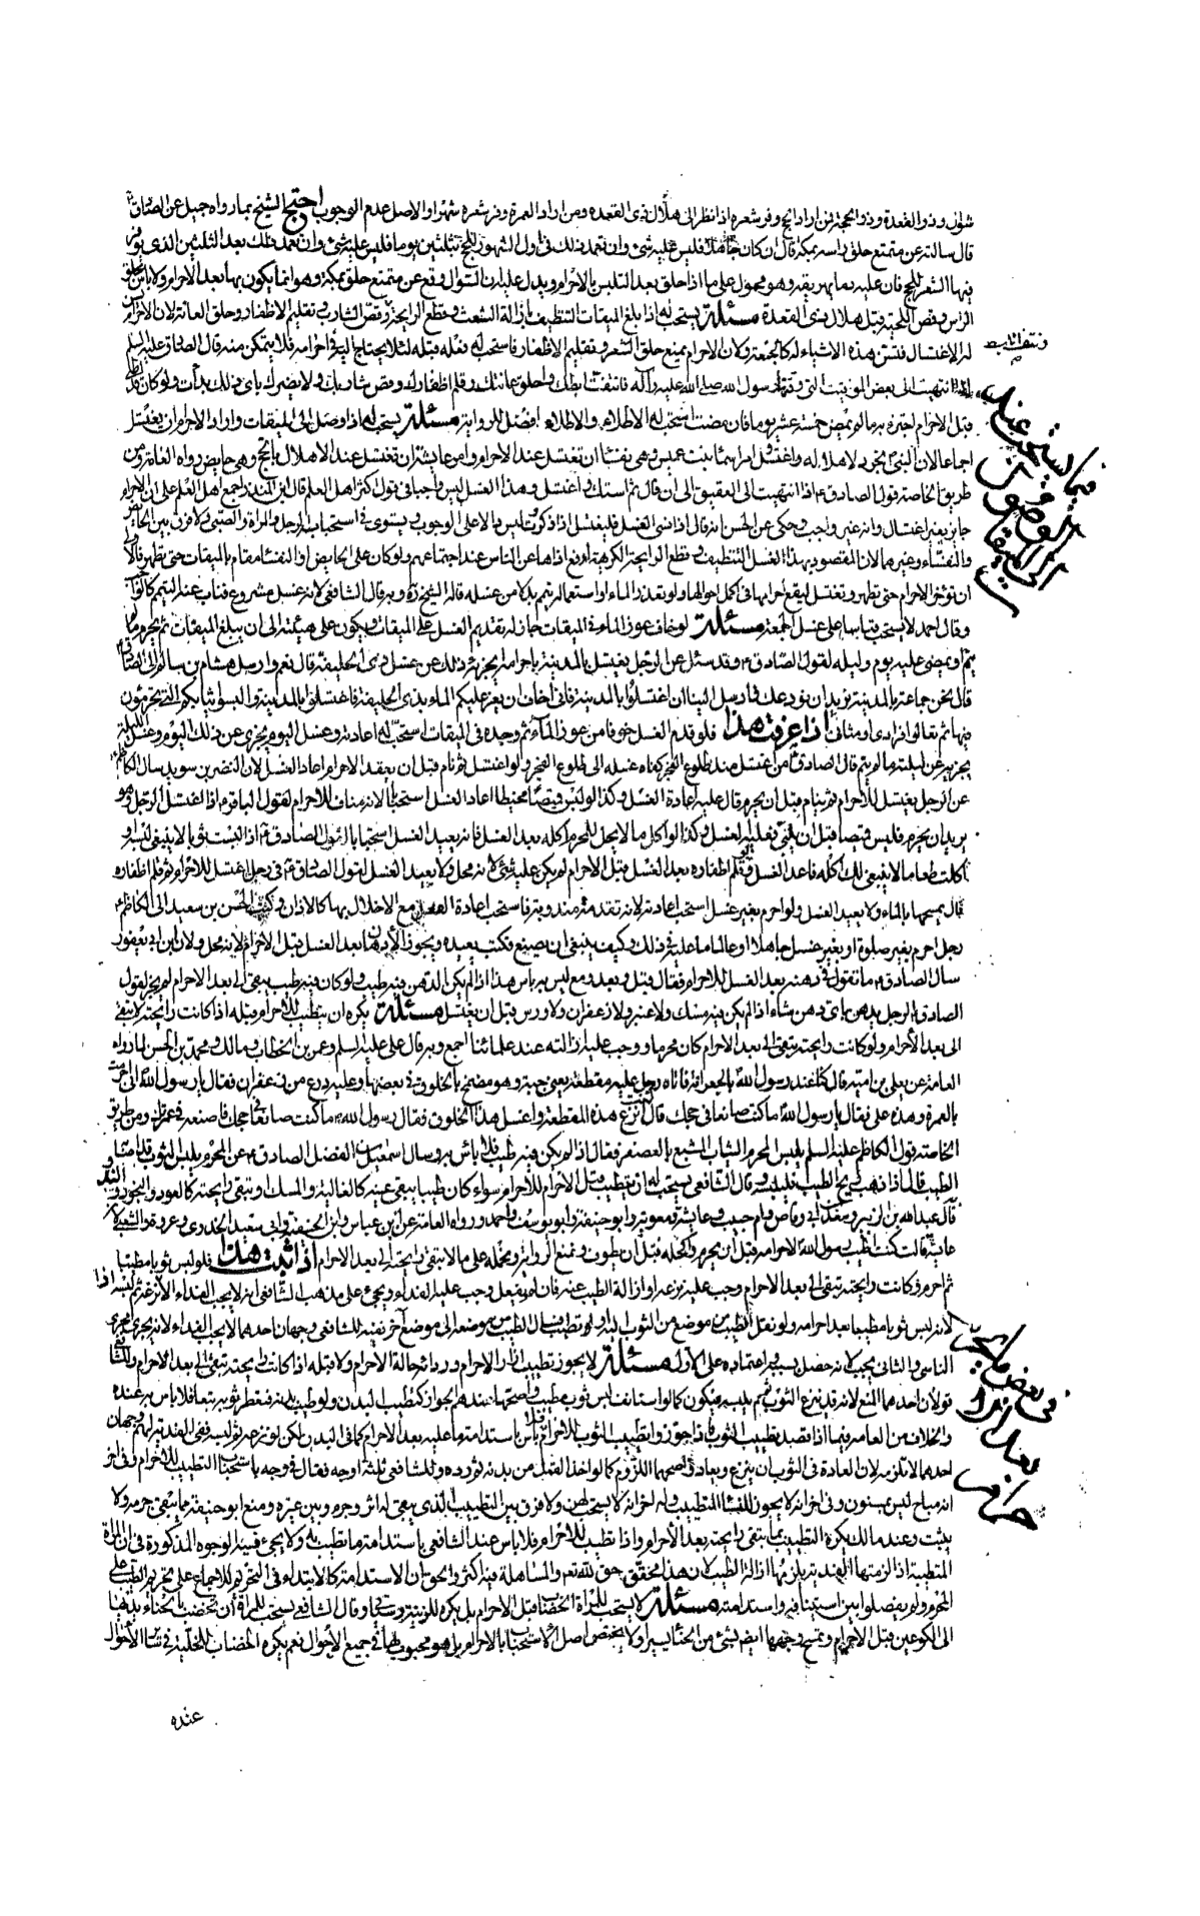 شوال وذو القعدة وذو الحجة فمن اراد الحج وفر شعره اذا نظر الى هلال ذى القعده ومن اراد العمرة وفر شعره شهرا والاصل عدم الوجوب احتج الشيخ بما رواه جميل عن الصادق ع
قال سالته عن متمتع حلق راسه بمكة قال ان كان جاهلا فليس عليه شئ وان تعمد ذلك فى اول الشهور للحج بثلثين يوما فليس عليه شئ وان تعمد ذلك بعد الثلثين الذى يوفر
فيها الشعر للحج فان عليه دما يهريقه وهو محمول على ما اذا حلق بعد التلبس بالاحرام ويدل عليه ان السؤال وقع عن متمتع حلق بمكة وهو انما يكون بها بعد الاحرام ولا باس بحلق
الراس وقص اللحية قبل هلال ذى القعدة مسئلة يستحب له اذا بلغ الميقات التنظيف بازالة الشعث وقطع الرايحة وقص الشارب وتقليم الاظفار وحلق العانة لان الاحرام
له الاغتسال فتسن هذه الاشياء له كالجمعة ولان الاحرام يمنع حلق الشعر وتقليم الاظفار فاستحب له فعله قبله لئلا يحتاج اليه فى احرامه فلا يتمكن منه قال الصادق عليه السلم
اذا انتهيت الى بعض المواقيت التى وقتها رسول الله صلى الله عليه وآله فانتف ابطك واحلق عانتك وقلم اظفارك وقص شاربك ولا يضرك باى ذلك بدأت ولو كان قد اطلى
قبل الاحرام اجتزء به ما لم يمض خمسة عشر يوما فان مضت استحب له الاطلاء والاطلاء افضل للرواية مسئلة يستحب له اذا وصل الى الميقات واراد الاحرام ان يغتسل
اجماعا لان النبى ص تجرد لاهلاله واغتسل وامر اسماء بنت عميس وهى نفساء ان تغتسل عند الاحرام وامر عايشة ان تغتسل عند الاهلال بالحج وهى حايض رواه العامة ومن
طريق الخاصة قول الصادق ع اذا انتهيت الى العقيق الى ان قال ثم استك واغتسل وهذا الغسل ليس واجبا فى قول اكثر اهل العلم قال ابن المنذر اجمع اهل العلم على ان الاحرام
جايز بغير اغتسال وانه غير واجب وحكى عن الحسن انه قال اذا نسى الغسل فليغتسل اذا ذكره وليس دالا على الوجوب ويستوى فى استحبابه الرجل والمراة والصبى ولا فرق بين الحايض
والنفساء وغيرهما لان المقصود بهذا الغسل التنظيف وقطع الرايحة الكريهة لدفع اذاها عن الناس عند اجتماعهم ولو كان على الحايض او النفساء مقام بالميقات حتى تطهر فالاولى
ان تؤخر الاحرام حتى تطهر وتغتسل ليقع احرامها فى اكمل احوالها ولو تعذر الماء او استعماله تيمم بدلا من غسله قاله الشيخ ره وبه قال الشافعى لانه غسل مشروع فناب عنه التيمم كالواجب
وقال احمد لا يستحب قياسا على غسل الجمعة مسئلة لو خاف عوز الماء فى الميقات جاز له تقديم الغسل على الميقات ويكون على هيئته الى ان يبلغ الميقات ثم يحرم ما لم
ينم او يمضى عليه يوم وليله لقول الصادق ع وقد سئل عن الرجل يغتسل بالمدينة باحرامه يجزيه ذلك عن غسل ذى الحليفة قال نعم وارسل هشام بن سالم الى الصادق ع
قال نحن جماعة بالمدينة نريد ان نودعك فارسل الينا ان اغتسلوا بالمدينة فانى اخاف ان يعز عليكم الماء بذى الحليفة فاغتسلوا بالمدينة والبسوا ثيابكم التى تحرمون
فيها ثم تعالوا فرادى او مثانى اذا عرفت هذا فلو قدم الغسل خوفا من عوز الماء ثم وجده فى الميقات استحب له اعادته وغسل اليوم يجزى عن ذلك اليوم وغسل الليلة
يجزيه عن ليلته ما لم ينم قال الصادق ع من اغتسل منذ طلوع الفجر كفاه غسله الى طلوع الفجر ولو اغتسل ثم نام قبل ان يعقد الاحرام اعاد الغسل لان النضر بن سويد سال الكاظم ع
عن الرجل يغتسل للاحرام ثم ينام قبل ان يحرم قال عليه اعادة الغسل وكذا لو لبس قميصا مخيطا اعاد الغسل استحبابا لانه مناف للاحرام لقول الباقر ع اذا اغتسل الرجل وهو
يريد ان يحرم فلبس قميصا قبل ان يلبى فعليه الغسل وكذا لو اكل ما لا يحل للمحرم اكله بعد الغسل فانه يعيد الغسل استحبابا لقول الصادق ع اذا لبست ثوبا لا ينبغى لبسه او
اكلت طعاما لا ينبغى لك اكله فاعد الغسل ولو قلم اظفاره بعد الغسل قبل الاحرام لم يكن عليه شئ لانه محل ولا يعيد الغسل لقول الصادق ع فى رجل اغتسل للاحرام ثم قلم اظفاره
قال يمسحها بالماء ولا يعيد الغسل ولو احرم بغير غسل استحب اعادته لانه تقدمة مندوبة فاستحب اعادة الفعل مع الاخلال بها كالاذان وكتب الحسن بن سعيد الى الكاظم ع
رجل احرم بغير صلوة او بغير غسل جاهلا او عالما ما عليه فى ذلك وكيف ينبغى ان يصنع فكتب يعيده ويجوز الادهان بعد الغسل قبل الاحرام لانه محل ولان ابن ابى يعفور
سال الصادق ع ما تقول فى دهنه بعد الغسل للاحرام فقال قبل وبعد ومع ليس به باس هذا اذا لم يكن الدهن فيه طيب ولو كان فيه طيب يبقى الى بعد الاحرام لم يجز لقول
الصادق ع الرجل يدهن باى دهن شاء اذا لم يكن فيه مسك ولا عنبر ولا زعفران ولا ورس قبل ان يغتسل مسئلة يكره ان يتطيب للاحرام قبله اذا كانت رائحته لا تبقى
الى بعد الاحرام ولو كانت رائحته تبقى الى بعد الاحرام كان محرما ووجب عليه ازالته عند علمائنا اجمع وبه قال على عليه السلم وعمر بن الخطاب ومالك ومحمد بن الحسن لما رواه
العامة عن يعلى بن امية قال كنا عند رسول الله ص بالجعرانة فاتاه رجل عليه مقطعة يعنى جبة وهو مضمخ بالخلوق فى بعضها وعليه ردع من زعفران فقال يا رسول الله انى احرمت
بالعمرة وهذه على فقال يا رسول الله ما كنت صانعا فى حجك قال انزع هذه المقطعة واغسل هذا الخلوق فقال رسول الله ص ما كنت صانعا فى حجك فاصنعه فى عمرتك ومن طريق
الخاصة قول الكاظم عليه السلم يلبس المحرم الثياب المشبع بالعصفر فقال اذا لم يكن فيه طيب فلا باس به وسال اسمعيل بن الفضل الصادق ع عن المحرم يلبس الثوب قد اصابه
الطيب قال اذا ذهب ريح الطيب فليلبسه وقال الشافعى يستحب له ان يتطيب قبل الاحرام للاحرام سواء كان طيبا يبقى عينه كالغالية والمسك او تبقى رايحته كالعود والبخور والند
قال عبدالله بن الزبير وسعد بن ابى وقاص وام حبيبة وعايشة ومعوية وابو حنيفة وابو يوسف واحمد ورواه العامة عن ابن عباس وابن الحنفية وابى سعيد الخدرى وعروة والشعبى لان
عايشة قالت كنت اطيب رسول الله ص لاحرامه قبل ان يحرم ولحله قبل ان يطوف ونمنع الرواية ونحمله على ما لا تبقى رايحته الى بعد الاحرام اذا ثبت هذا فلو لبس ثوبا مطيبا
ثم احرم وكانت رايحته تبقى الى بعد الاحرام وجب عليه نزعه او ازالة الطيب عنه فان لم يفعل وجب عليه الفداء ويجئ على مذهب الشافعى انه لا يجب الفداء الا ان نزعه ثم لبسه اذا
لانه لبس ثوبا مطيبا بعد احرامه ولو نقل الطيب من موضع من الثوب اليه او لو تطيب فسال الطيب من موضعه الى موضع آخر ففيه للشافعى وجهان احدهما لا يجب الفداء لانه يجرى مجرى
الناسى والثانى يجب لانه حصل بسببه واعتماده على الاول مسئلة لا يجوز تطييب ازار الاحرام وردائه حالة الاحرام ولا قبله اذا كانت رايحته تبقى الى بعد الاحرام وللشافعى
قولان احدهما المنع لانه قد ينزع الثوب ثم يلبسه فيكون كما لو استانف لبس ثوب مطيب واصحهما عندهم الجواز كتطيب البدن ولو طيب بدنه فتعطر ثوبه تبعا فلا باس به عنده
والخلاف من العامه فيما اذا قصد تطييب الثوب فاذا جوزوا تطييب الثوب للاحرام فلا باس باستدامة ما عليه بعد الاحرام كما فى البدن لكن لو نزعه ثم لبسه ففى الفدية لهم وجهان
احدهما لا تلزمه لان العادة فى الثوب ان ينزع ويعاد واصحهما اللزوم كما لو اخذ الطيب من بدنه ثم رده وللشافعى ثلثة اوجه فقال فى وجه باستحباب التطييب للاحرام وفى آخر
انه مباح ليس بمسنون وفى آخر انه لا يجوز للنساء التطييب وله آخر انه لا يستحب لهن ولا فرق بين التطييب الذى يبقى له اثر وجرم وبين غيره ومنع ابو حنيفة مما يبقى جرمه ولا
يثبت وعند مالك يكره التطييب بما تبقى رايحته بعد الاحرام واذا تطيب للاحرام فلا باس عند الشافعى باستدامة ما تطيب به ولا يجئ فيه الوجوه المذكورة فى ان المراة
المتطيبة اذا لزمتها العدة يلزمها ازالة الطيب لان هذا محقق حق لله تعم والمساهلة فيه اكثر والحق ان الاستدامة كالابتداء فى التحريم للاجماع على تحريم الطيب على
المحرم ولم يفصلوا بين استينافه واستدامته مسئلة لا يستحب للمراة الخضاب قبل الاحرام بل يكره للزينة وسياتى وقال الشافعى يستحب للمراة ان تخضب بالحناء يديها
الى الكوعين قبل الاحرام وتمسح وجهها ايضا بشئ من الحناء يسيرا ولا يختص اصل الاستحباب بالاحرام بل هو محبوب لها فى جميع الاحوال نعم يكره الخضاب للخلية فى سائر الاحوال
عنده
فيما يستحب عند
الوصول
الى الميقات
فى بعض ما يجب
بعد